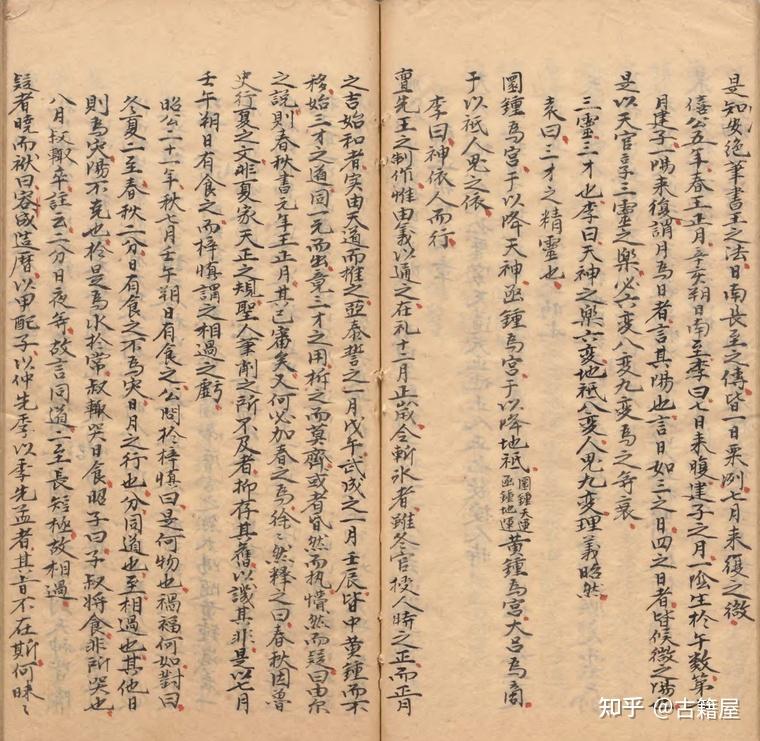 是知安絶筆書王之法日南長至之傳皆一日栗列七月来復之徴
僖公五年春王正月辛亥朔日南至李曰七日来復建子之月一陰生於午数第
月建子一陽来復謂月為日者言其陽也言日如三之日四之日者皆候徴之陽
是以天官享三霊之樂必六変八変九変為之等衰
三霊三才也李曰天神之樂六変地祇八変人鬼九変理義昭然
袁曰三才之精霊也
圜鍾為宮于以降天神函鍾為宮于以降地祇圜鍾天運函鍾地運黄鍾為宮大吕為角
于以祇人鬼之依
李曰神依人而行
亶先王之制作惟由義以通之在礼十二月正歳令斬氷者雖冬官授人時之正而正月
之吉始和者实由天道而推之亞泰誓之一月戊午武成之一月壬辰皆中黄鍾而不
移始三才之道同一元而出章三才之用析之而莫齊或者昏然而执懵然而疑曰由尔
之説則春秋書元年王正月其已審矣又何必加春之為徐々然釋之曰春秋因魯
史行夏之文非夏家天正之規聖人筆削之所不及者抑存其舊以譏其非是以七月
壬午朔日有食之而梓慎謂之相過之虧
昭公二十一年秋七月壬午朔日有食之公問於梓慎曰是何物也禍福何如對曰
冬夏二至春秋二分日有食之不為灾日月之行也分同道也至相過也其他日
則為灾陽不克也於是為水於常叔輙哭日食昭子曰子叔將食非所哭也
八月叔輙卒註云二分日夜等故言同道二至長短極故相過
疑者曉而袱曰容成造暦以甲配子以仲先季以季先孟者其旨不在斯何昧々
知乎 @古籍屋